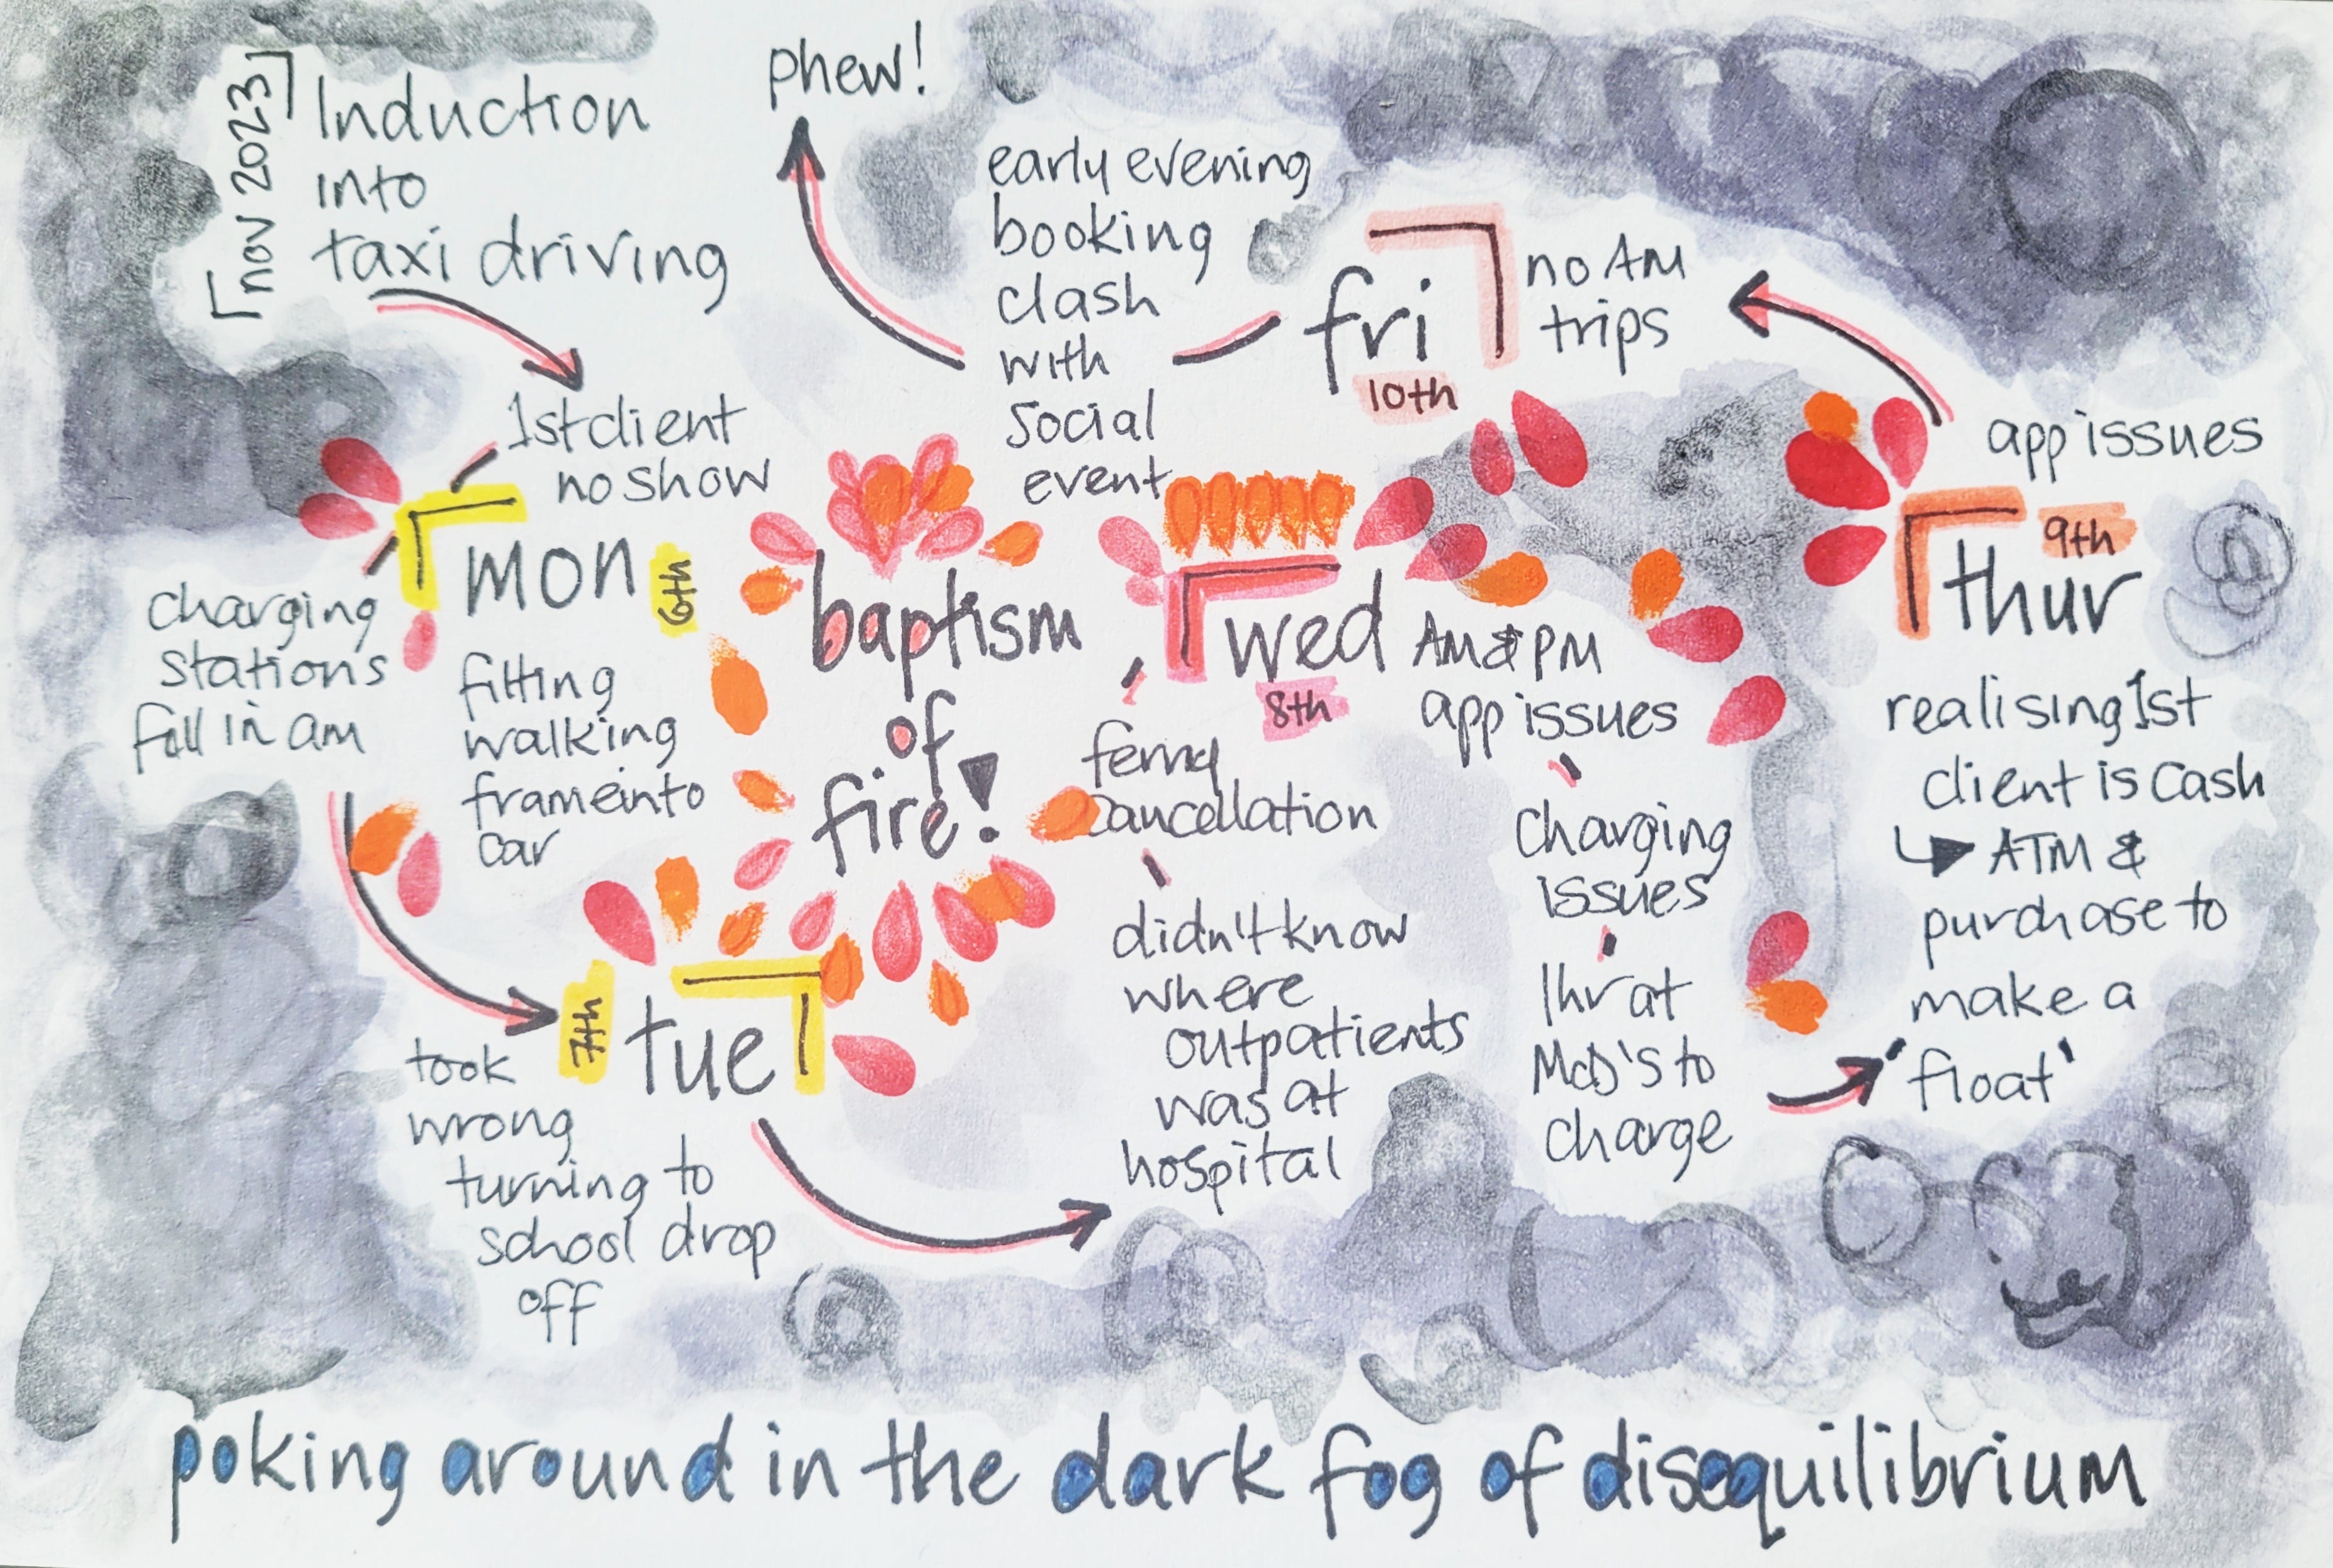 [nov 2023]
Induction
into
taxi driving
1st client
no show
mon
6th
charging
stations
full in am
fitting
walking
frame into
car
7th
tue
took
wrong
turning to
school drop
off
baptism
of
fire!
wed
8th
ferry
cancellation
didn't know
where
outpatients
was at
hospital
AM & PM
app issues
charging
issues
1hr at
McD's to
charge
app issues
9th
thur
realising 1st
client is cash
ATM &
purchase to
make a
'float'
no AM
trips
fri
10th
early evening
booking
clash
with
social
event
phew!
poking around in the dark fog of disequilibrium